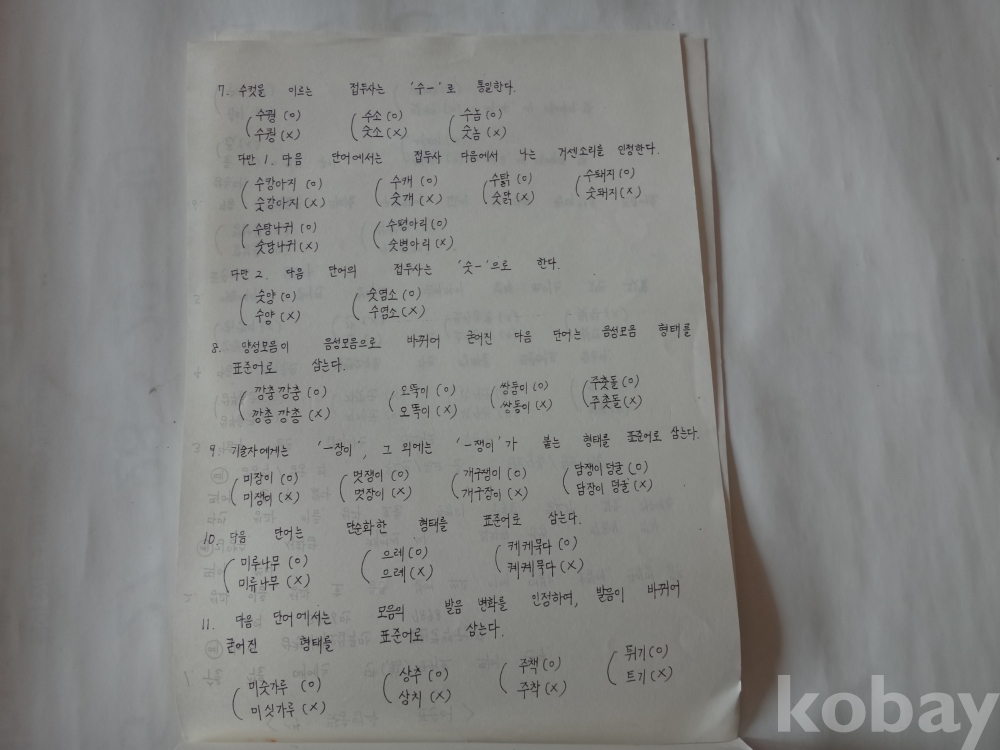 7. 수컷을 이르는 접두사는 '수-'로 통일한다.
수꿩 (O) 수소 (O) 수놈 (O)
수퀑 (X) 숫소 (X) 숫놈 (X)
다만 1. 다음 단어에서는 접두사 다음에서 나는 거센소리를 인정한다.
수캉아지 (O) 수캐 (O) 수탉 (O) 수퇘지 (O)
숫강아지 (X) 숫개 (X) 숫닭 (X) 숫돼지 (X)
수탕나귀 (O) 수평아리 (O)
숫당나귀 (X) 숫병아리 (X)
다만 2. 다음 단어의 접두사는 '숫-'으로 한다.
숫양 (O) 숫염소 (O)
수양 (X) 수염소 (X)
8. 양성모음이 음성모음으로 바뀌어 굳어진 다음 단어는 음성모음 형태를
표준어로 삼는다.
깡충깡충 (O) 오뚝이 (O) 쌍둥이 (O) 주춧돌 (O)
깡총깡총 (X) 오똑이 (X) 쌍동이 (X) 주촛돌 (X)
9. 기술자에게는 '-장이', 그 외에는 '-쟁이'가 붙는 형태를 표준어로 삼는다.
미장이 (O) 멋쟁이 (O) 개구쟁이 (O) 담쟁이 덩굴 (O)
미쟁이 (X) 멋장이 (X) 개구장이 (X) 담장이 덩굴 (X)
10. 다음 단어는 단순화한 형태를 표준어로 삼는다.
미루나무 (O) 으레 (O) 케케묵다 (O)
미류나무 (X) 으례 (X) 켸켸묵다 (X)
11. 다음 단어에서는 모음의 발음 변화를 인정하여, 발음이 바뀌어
굳어진 형태를 표준어로 삼는다.
미숫가루 (O) 상추 (O) 주책 (O) 튀기 (O)
미싯가루 (X) 상치 (X) 주착 (X) 트기 (X)
kobay